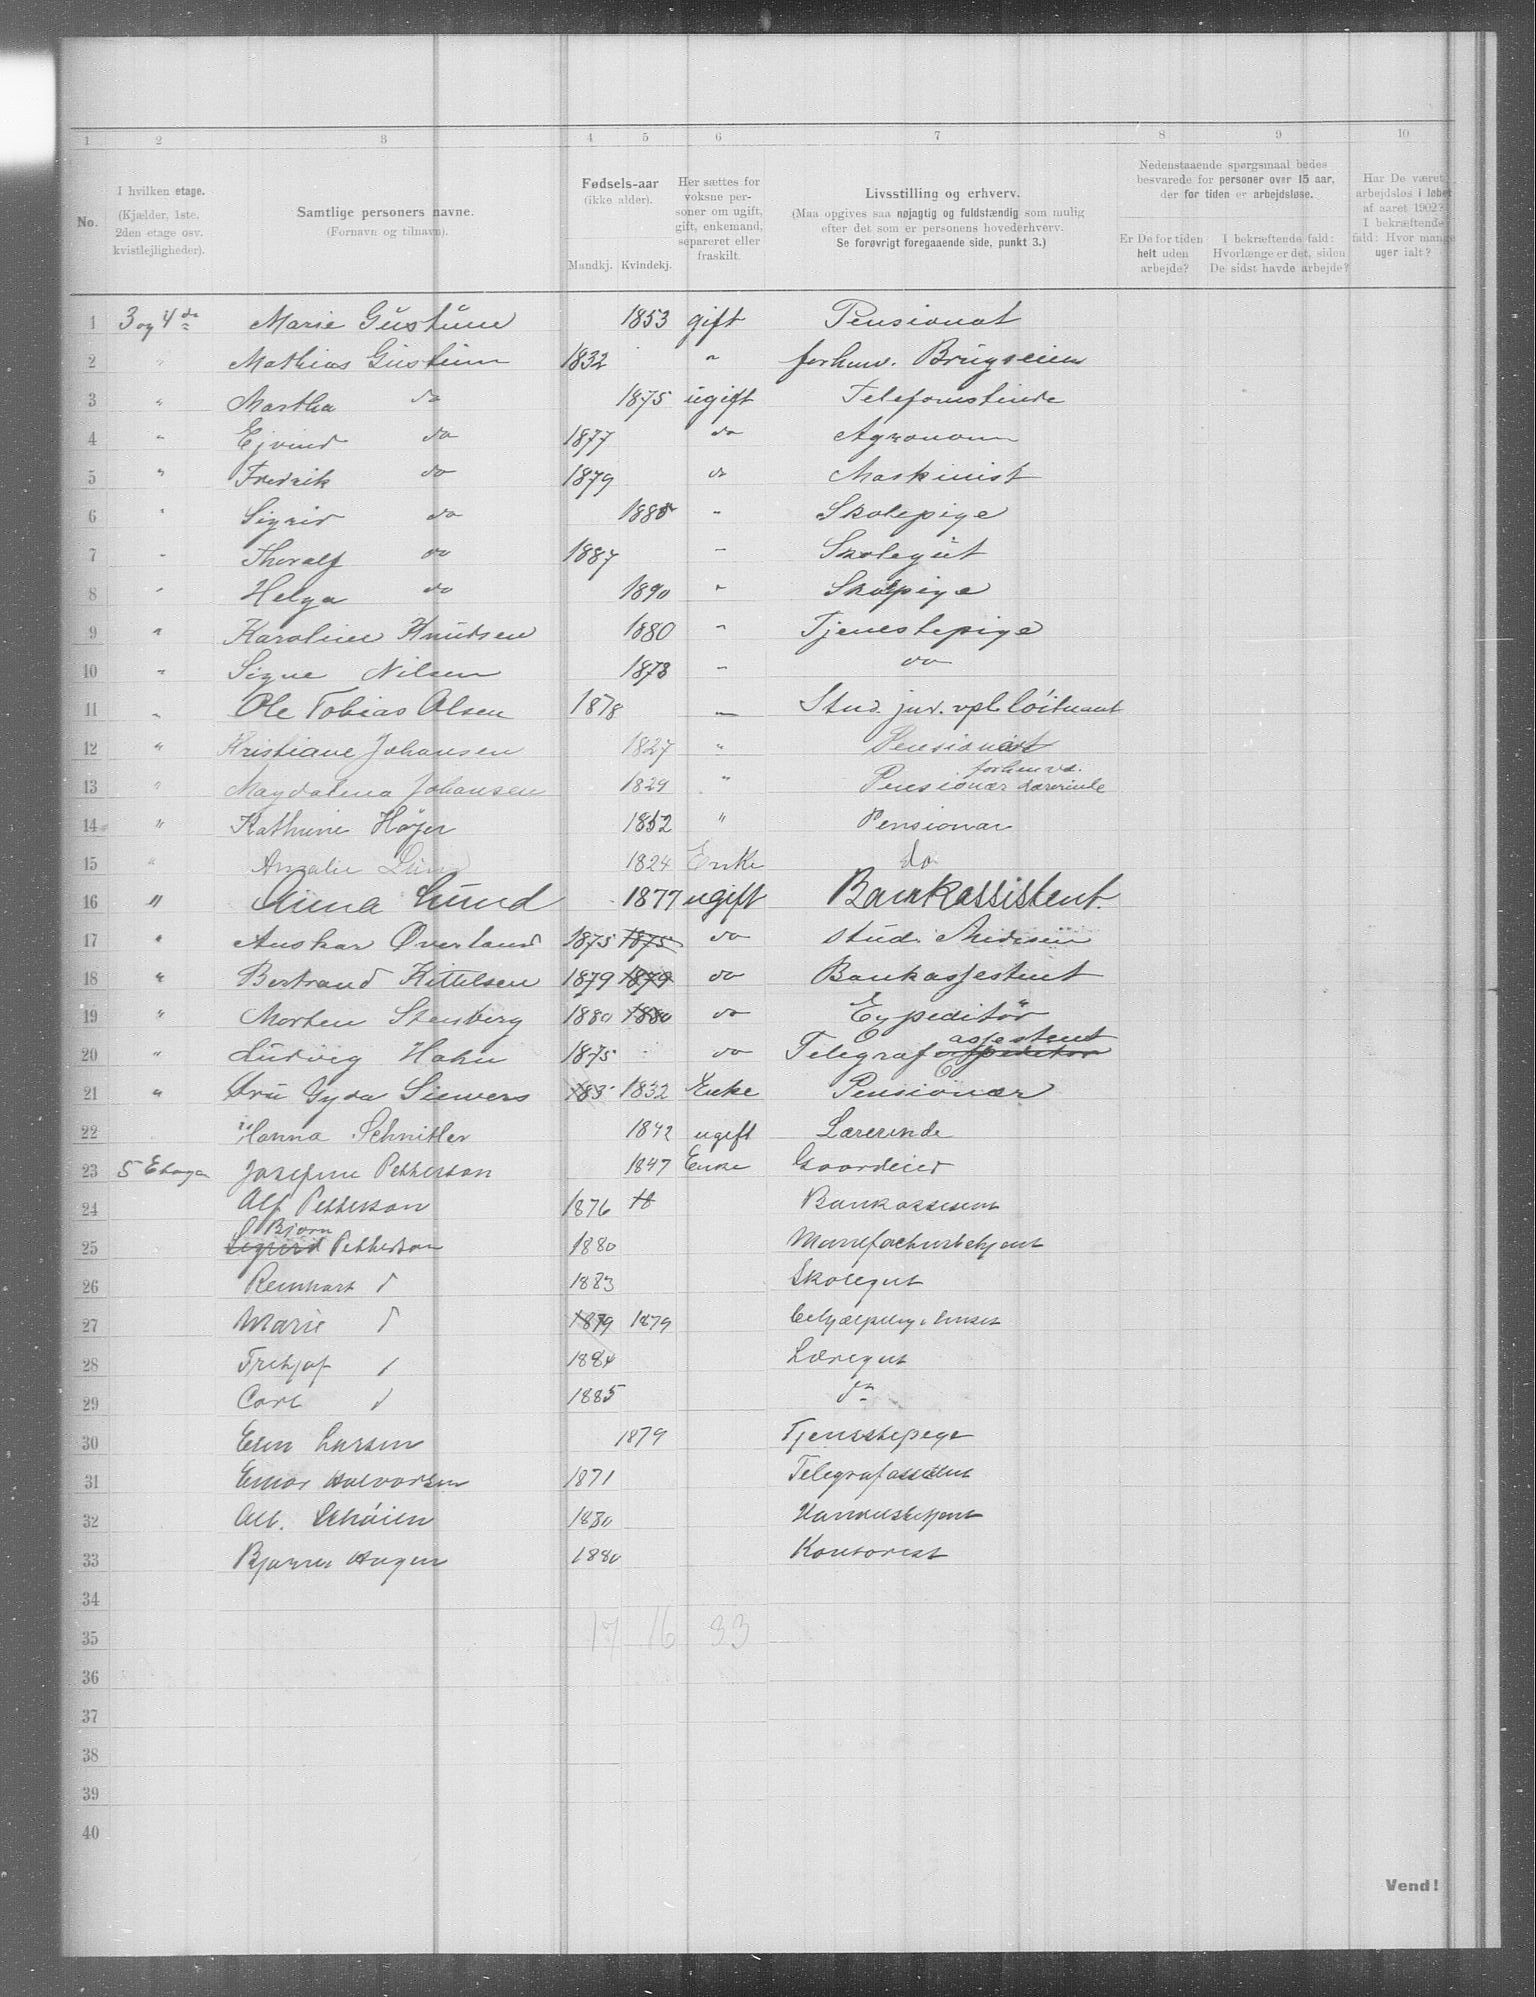 1 2 3 4 5 6 7 8 9 10
No.
I hvilken etage.
(Kjælder, 1ste.
2den etage osv.
kvistlejligheder).
Samtlige personers navne.
(Fornavn og tilnavn).
Fødsels-aar
(ikke alder).
Mandkj. Kvindekj.
Her sættes for
voksne per-
soner om ugift,
gift, enkemand,
separeret eller
fraskilt.
Livsstilling og erhverv.
(Maa opgives saa nøjagtig og fuldstændig som mulig
efter det som er personens hovederhverv.
Se forøvrigt foregaaende side, punkt 3.)
Nedenstaaende spørgsmaal bedes
besvarede for personer over 15 aar,
der for tiden er arbejdsløse.
Er De for tiden
helt uden
arbejde?
I bekræftende fald:
Hvorlænge er det, siden
De sidst havde arbejde?
Har De været
arbejdsløs i løbet
af aaret 1902?
I bekræftende
fald: Hvor mange
uger ialt?
1 3 og 4de Marie 1853 gift Pensionat
2 " Mathias 1832 "
3 " Martha do 1875 ugift Telefonistinde
4 " Ejvind do 1877 do Agronom
5 " Fredrik do 1879 do Maskinist
6 " Sigrid do " Skolepige
7 " Thoralf do 1887 " Skolegut
8 " Helga do 1890 " Skolpige
9 " Karoline Knudsen 1880 " Tjenestepige
10 " Signe Nilsen 1878 " do
11 " Ole Tobias Olsen 1878 " Stud. jur. vpl. löitnant
12 " Kristiane Johansen 1827 "
13 " Magdalena Johansen 1829 " Pensionær forhenv. Lærerinde
14 " Kathrine Høyer 1852 " Pensionær
15 " Lund 1824 Enke do
16 " Anna Lund 1877 ugift Bankassistent.
17 " Anskar Øverland 1875 1875 do stud. Medisin
18 " Bertrand Kittelsen 1879 1879 do Bankassestent
19 " Morten Stensberg 1880 1880 do Expeditör
20 " Ludvig Hahn 1875 do Telegrafexpeditör assestent
21 " Fru Gyda Siewers 183 1832 Enke Pensionær
22 Hanna Schnitler 1842 ugift Lærerinde
23 5 Etage Josefine Petterson 1847 Enke Gaardeier
24 Alf Petterson 1876 18 Bankassistent
25 Sigurd Bjørn Petterson 1880 Manufacturbetjent
26 Reinhart d 1883 Skolegut
27 Marie d 1879 1879 behjælpelig i huset
28 Fritjof d 1884 Læregut
29 Carl d 1885 do
30 Elin Larsen 1879 Tjenestepige
31 Einar Halvorsen 1871 Telegrafassistent
32 Alb. Schøien 1880 Handelsbetjent
33 Bjarne Hagen 1880 Kontorist
34
35 17 16 33
36
37
38
39
40
Vend!